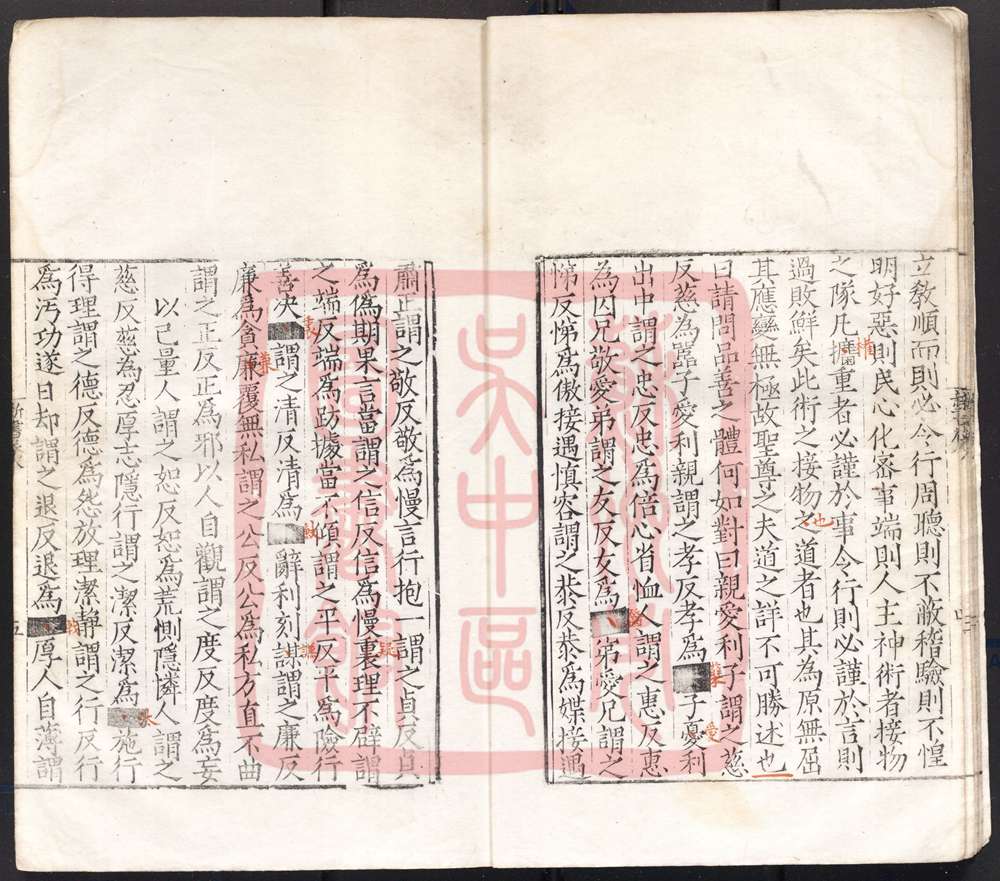 立教順而則必令行周聽則不蔽稽驗則不惶
明好惡則民心化密事端則人主神術者接物
之隊凡攡重者必謹於事令行則必謹於言則
過敗鮮矣此術之接物之道者也其為原無屈
其應變無極故聖尊之夫道之詳不可勝述也
曰請問品善之體何如對曰親愛利子謂之慈
反慈為嚚子愛利親謂之孝反孝為子憂利
出中謂之忠反忠為倍心省恤人謂之惠反惠
為囚兄敬愛弟謂之友反友為弟愛兄謂之
悌反悌爲傲接遇慎容謂之恭反恭爲媟接遇
肅正謂之敬反敬為慢言行抱一謂之貞反貞
爲偽期果言當謂之信反信為慢裏理不辟謂
之端反端爲㫄據當不傾謂之平反平爲險行
善决謂之清反清爲辭利刻謙謂之廉反
廉爲貪廉覆無私謂之公反公爲私方直不曲
謂之正反正爲邪以人自觀謂之度反度爲妄
以己量人謂之恕反恕為荒惻隱憐人謂之
慈反慈爲忍厚志隱行謂之潔反潔爲施行
得理謂之德反德爲怨放理潔静謂之行反行
爲汚功遂自却謂之退反退爲厚人自薄謂
五